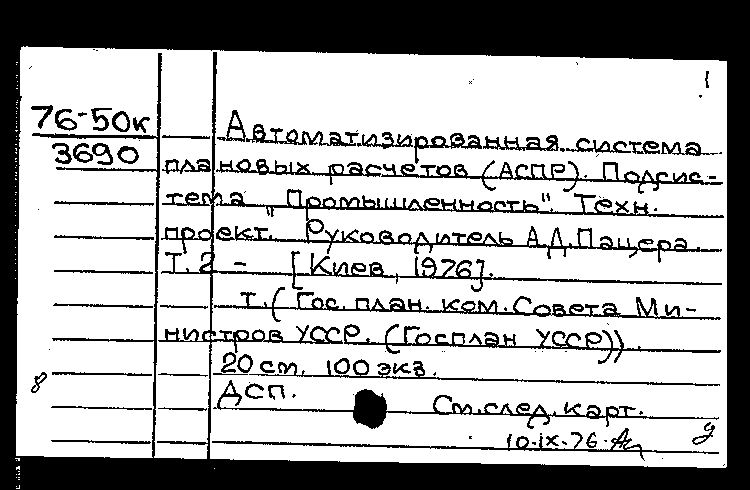 1
76-50к
3690
Автоматизированная система
плановых расчетов (АСПР). Подсис-
тема "Промышленность". Техн.
проект. Руководитель А.Д.Пацера.
Т.2 - [Киев, 1976].
т. (Гос. план. ком. Совета Ми-
нистров УССР. (Госплан УССР)).
20 см. 100 экз.
8
ДСП.
См. след. карт.
10.IX.76.